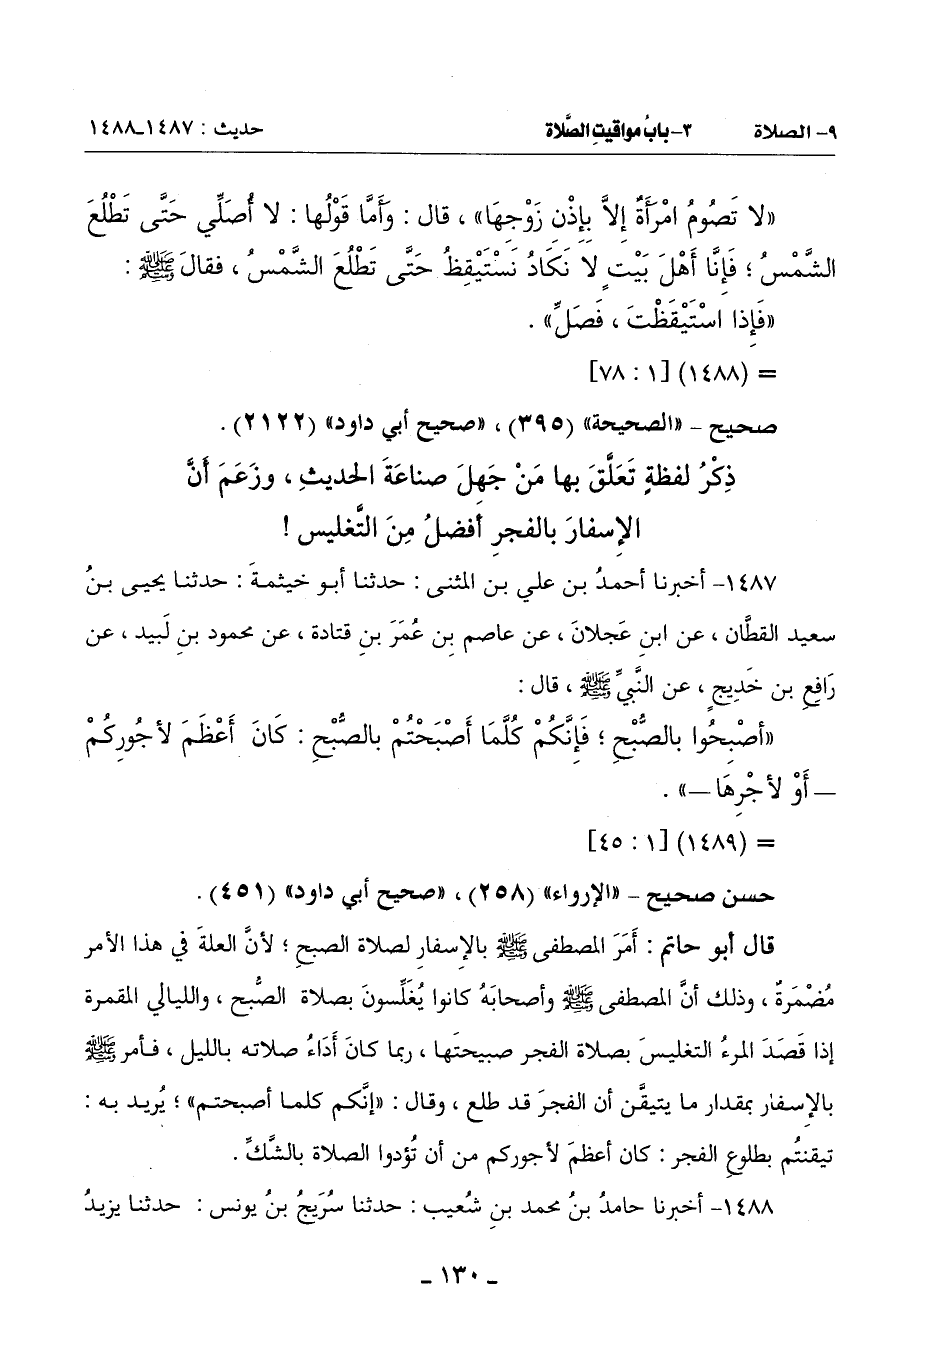 ٩- الصلاة ٣- بابُ مواقيتِ الصَّلاة حديث : ١٤٨٧-١٤٨٨
«لا تَصُومُ امْرَأَةٌ إلاَّ بِإذْنِ زَوْجِهَا» ، قال : وَأَمَّا قَوْلُها : لا أُصَلِّي حَتَّى تَطْلُعَ
الشَّمْسُ ؛ فَإنَّا أَهْلَ بَيْتٍ لا نَكَادُ نَسْتَيْقِظُ حَتَّى تَطْلُعَ الشَّمْسُ ، فقالَ ﷺ :
«فَإذا اسْتَيْقَظْتَ ، فَصَلِّ» .
= (١٤٨٨) [١ : ٧٨]
صحيح – «الصحيحة» (٣٩٥) ، «صحيح أبي داود» (٢١٢٢) .
ذِكْرُ لفظةٍ تَعَلَّقَ بها مَنْ جَهِلَ صناعَةَ الحديثِ ، وزَعَمَ أنَّ
الإسفارَ بالفجرِ أفضلُ مِنَ التَّغليس !
١٤٨٧- أخبرنا أحمدُ بن علي بن المثنى : حدثنا أبو خيثمةَ : حدثنا يحيى بنُ
سعيد القطَّان ، عن ابنِ عَجلانَ ، عن عاصم بنِ عُمَرَ بنِ قتادة ، عن محمود بنِ لَبيد ، عن
رَافِعِ بن خَديجٍ ، عن النَّبيِّ ﷺ ، قال :
«أصْبِحُوا بالصُّبْحِ ؛ فَإنَّكُمْ كُلَّمَا أَصْبَحْتُمْ بالصُّبْحِ : كَانَ أَعْظَمَ لأجُورِكُمْ
— أَوْ لأجْرِهَا —» .
= (١٤٨٩) [١ : ٤٥]
حسن صحيح – «الإرواء» (٢٥٨) ، «صحيح أبي داود» (٤٥١) .
قال أبو حاتم : أَمَرَ المصطفى ﷺ بالإسفار لصلاة الصبحِ ؛ لأنَّ العلةَ في هذا الأمر
مُضْمَرةٌ ، وذلك أنَّ المصطفى ﷺ وأصحابَهُ كانوا يُغَلِّسونَ بصلاة الصُّبح ، والليالي المقمرة
إذا قَصَدَ المرءُ التغليسَ بصلاة الفجر صبيحتَها ، ربما كانَ أَدَاءُ صلاته بالليل ، فأمر ﷺ
بالإسفار بمقدار ما يتيقَّن أن الفجرَ قد طلع ، وقال : «إنَّكم كلما أصبحتم» ؛ يُريد به :
تيقنتُم بطلوعِ الفجر : كان أعظمَ لأجوركم من أن تُؤدوا الصلاة بالشَّكِّ .
١٤٨٨- أخبرنا حامدُ بنُ محمد بنِ شُعيب : حدثنا سُرَيجُ بنُ يونس : حدثنا يزيدُ
- ١٣٠ -